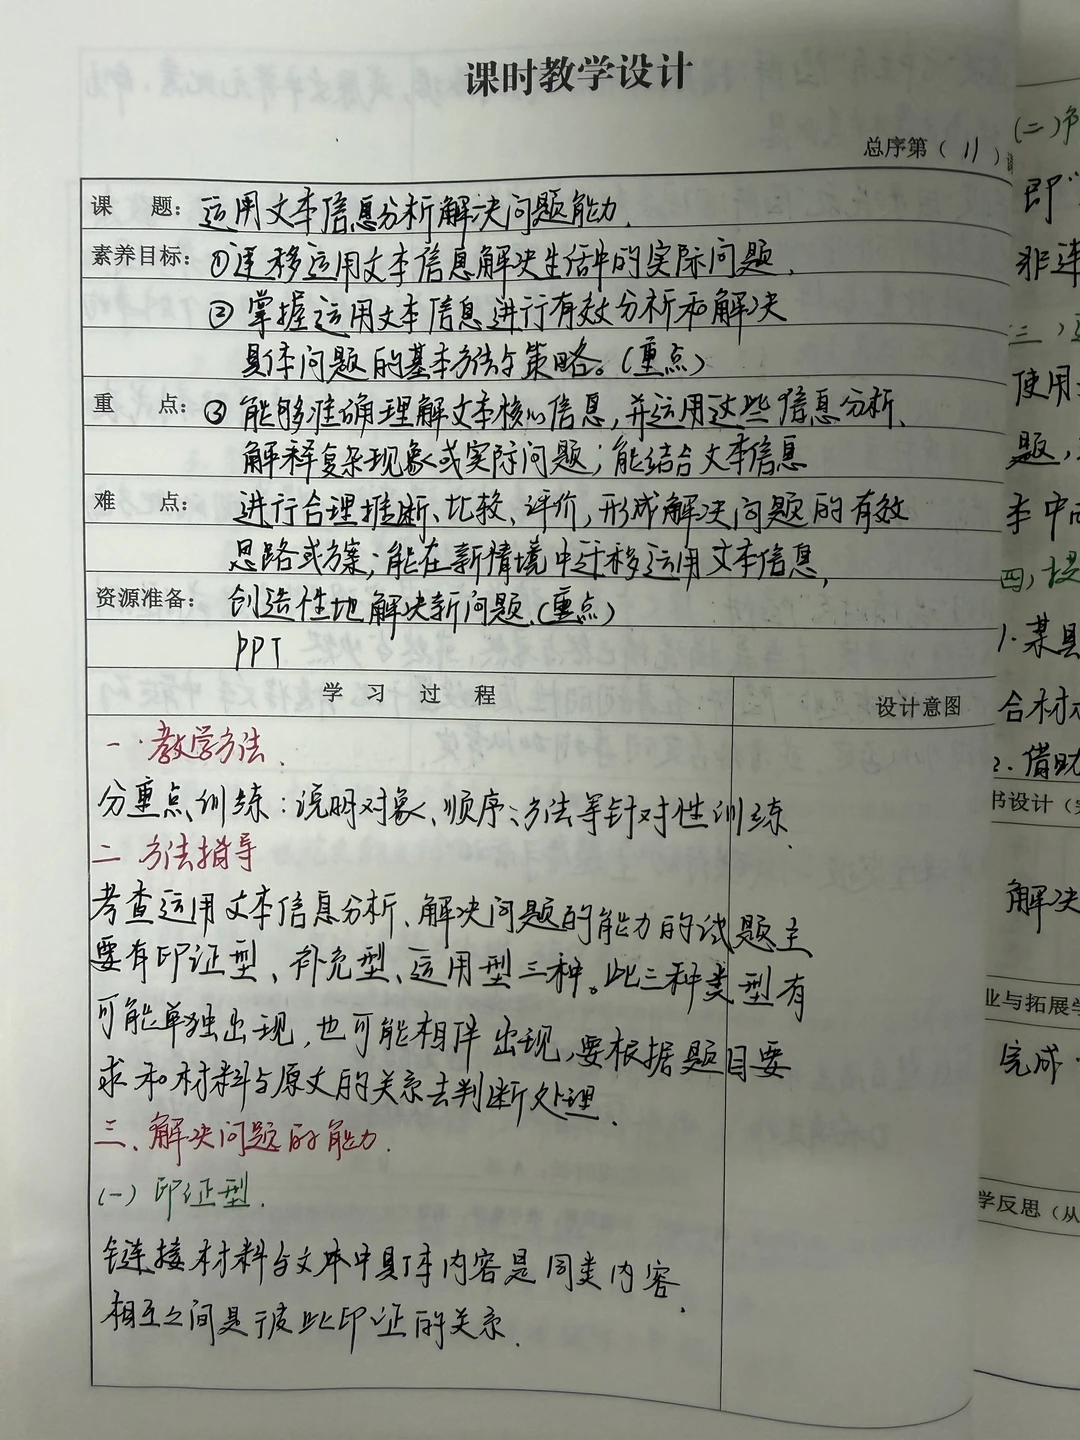 课时教学设计
总序第（ 11 ）
课 题：运用文本信息分析解决问题能力.
素养目标：①迁移运用文本信息解决生活中的实际问题.
②掌握运用文本信息进行有效分析和解决
具体问题的基本方法与策略。(重点)
重 点：③能够准确理解文本核心信息,并运用这些信息分析、
解释复杂现象或实际问题;能结合文本信息
难 点：进行合理推断、比较、评价,形成解决问题的有效
思路或方案;能在新情境中迁移运用文本信息,
资源准备：创造性地解决新问题.(重点)
PPT
学 习 过 程 设计意图
一.教学方法.
分重点训练:说明对象、顺序、方法等针对性训练.
二 方法指导
考查运用文本信息分析、解决问题的能力的试题主
要有印证型、补充型、运用型三种。此三种类型有
可能单独出现,也可能相伴出现,要根据题目要
求和材料与原文的关系去判断处理.
三、解决问题的能力.
(一)印证型.
链接材料与文本中具体内容是同类内容,
相互之间是彼此印证的关系.
(二)
即"
非连
三)
使用
题,
李中
四)
1.某县
合材
2.借助
书设计（
解决
业与拓展学
完成
学反思（从